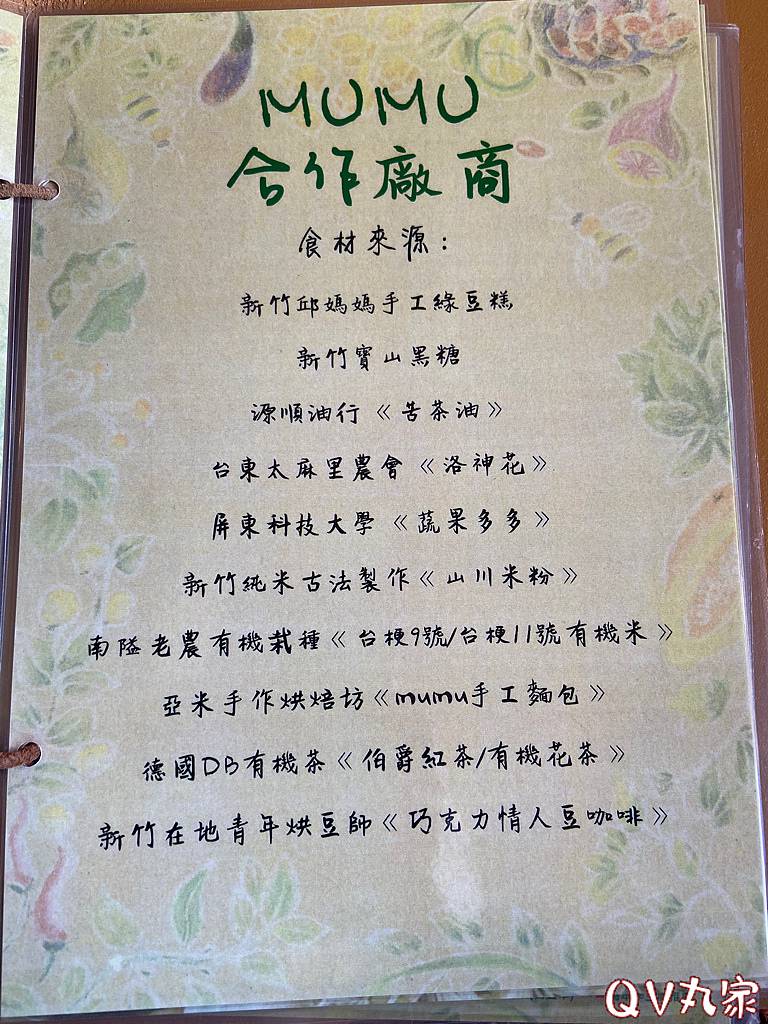 MUMU
合作廠商
食材來源：
新竹邱媽媽手工綠豆糕
新竹寶山黑糖
源順油行《苦茶油》
台東太麻里農會《洛神花》
屏東科技大學《蔬果多多》
新竹純米古法製作《山川米粉》
南隘老農有機栽種《台梗9號/台梗11號有機米》
亞米手作烘焙坊《mumu手工麵包》
德國DB有機茶《伯爵紅茶/有機花茶》
新竹在地青年烘豆師《巧克力情人豆咖啡》
QV丸家